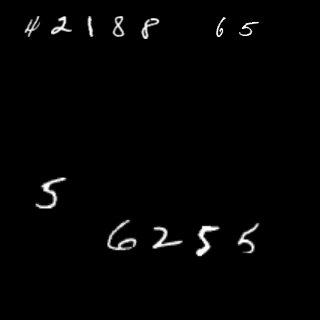 42188 65
5
6255